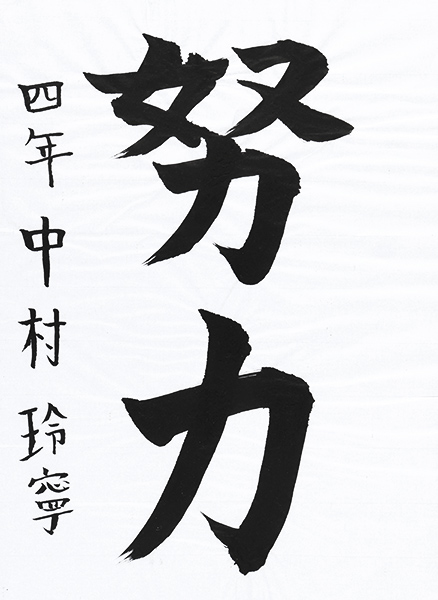 努力
四年 中村 玲寧